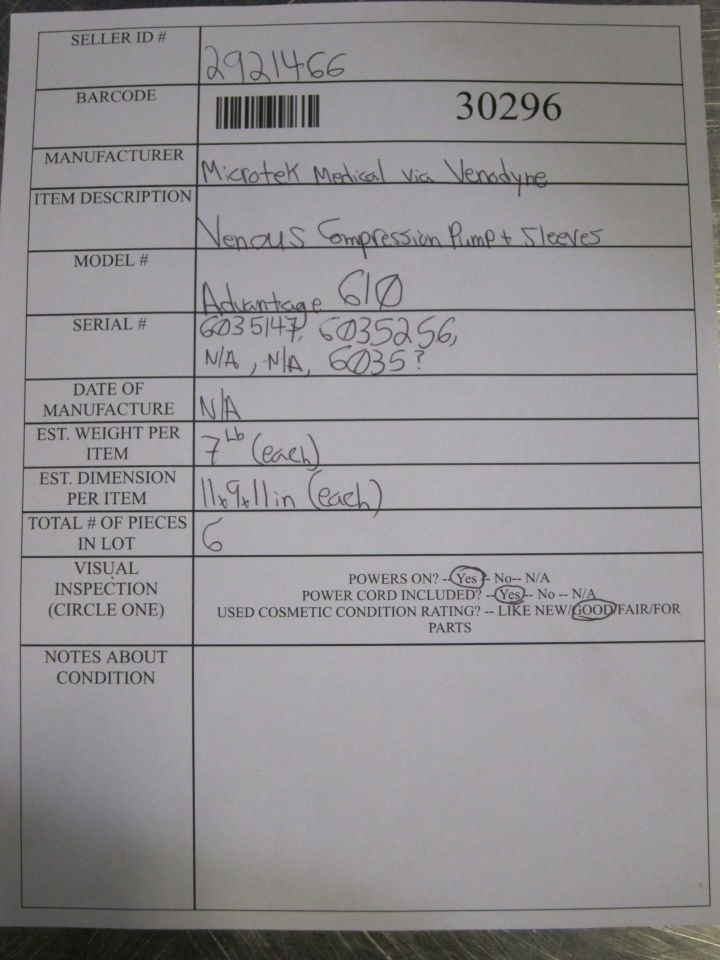 SELLER ID #
2921466
BARCODE
30296
MANUFACTURER
Microtek Medical via Venodyne
ITEM DESCRIPTION
Venous Compression Pump + Sleeves
MODEL #
Advantage 610
SERIAL #
6035147, 6035256,
N/A, N/A, 6035?
DATE OF
MANUFACTURE
N/A
EST. WEIGHT PER
ITEM
7 Lb (each)
EST. DIMENSION
PER ITEM
11x9x11in (each)
TOTAL # OF PIECES
IN LOT
6
VISUAL
INSPECTION
(CIRCLE ONE)
POWERS ON? -- Yes -- No-- N/A
POWER CORD INCLUDED? -- Yes -- No -- N/A
USED COSMETIC CONDITION RATING? -- LIKE NEW/GOOD/FAIR/FOR
PARTS
NOTES ABOUT
CONDITION